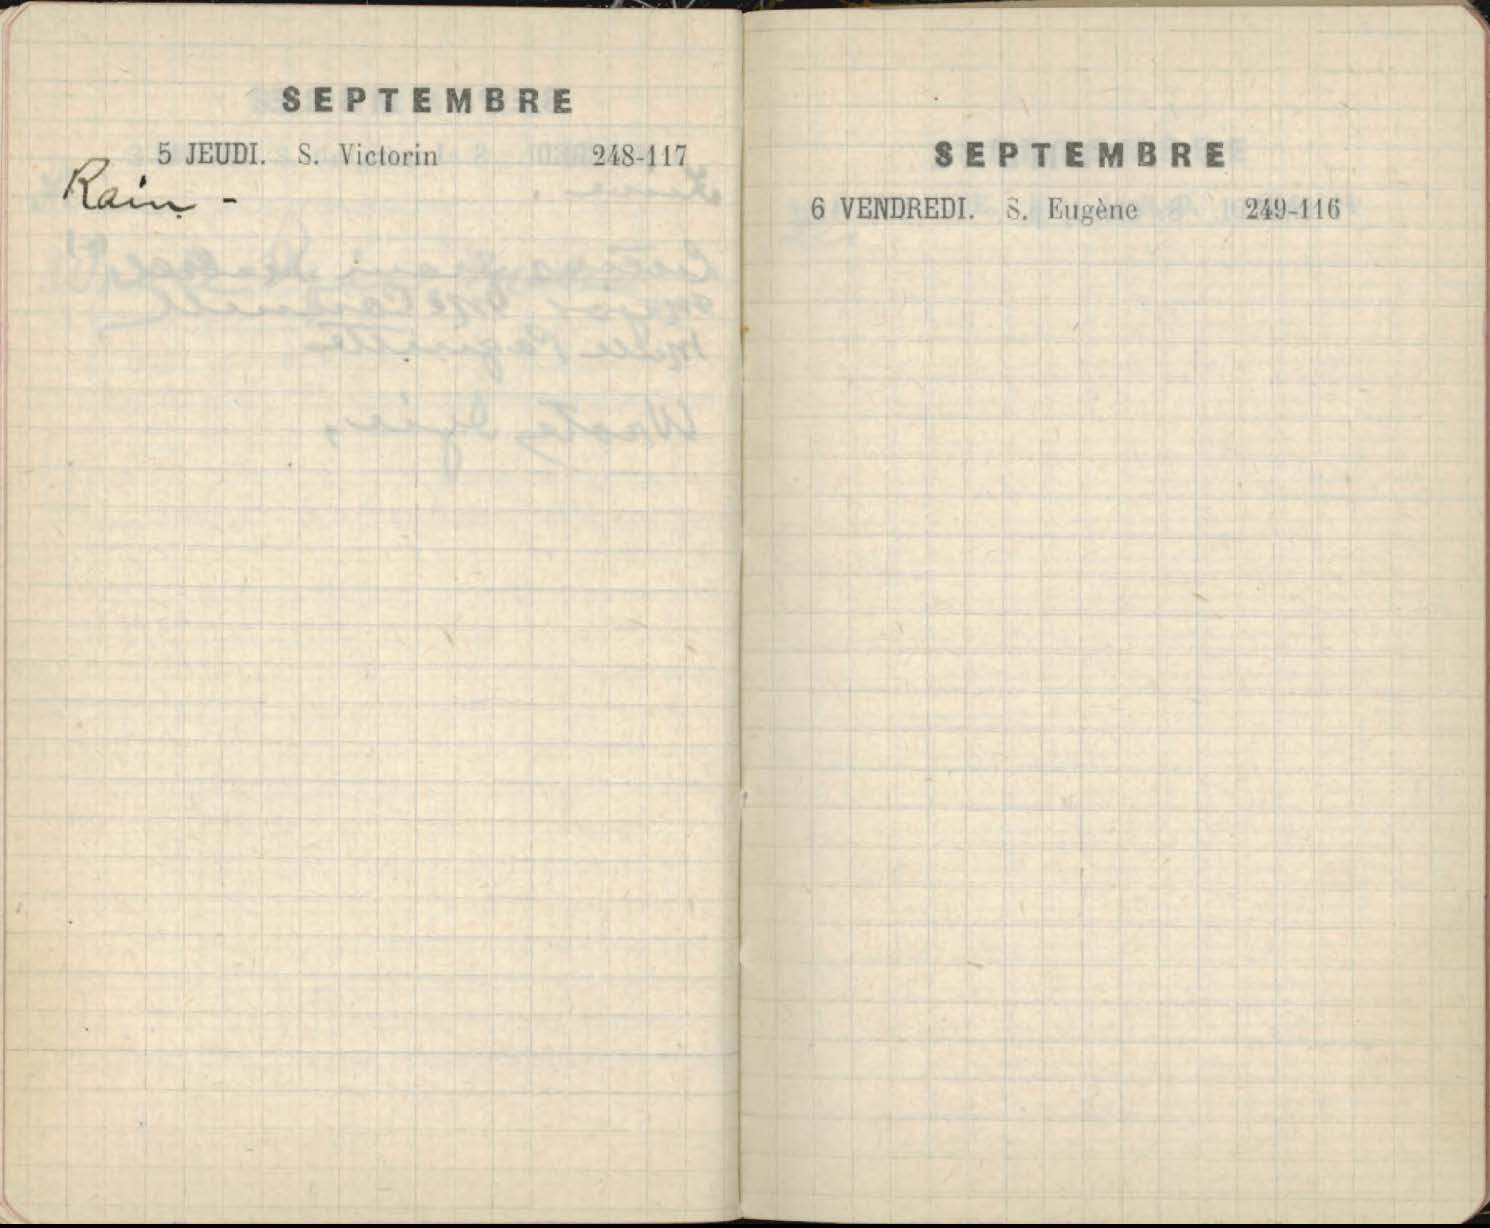 SEPTEMBRE
5 JEUDI. S. Victorin 248-117
Rain -
SEPTEMBRE
6 VENDREDI. S. Eugène 249-116